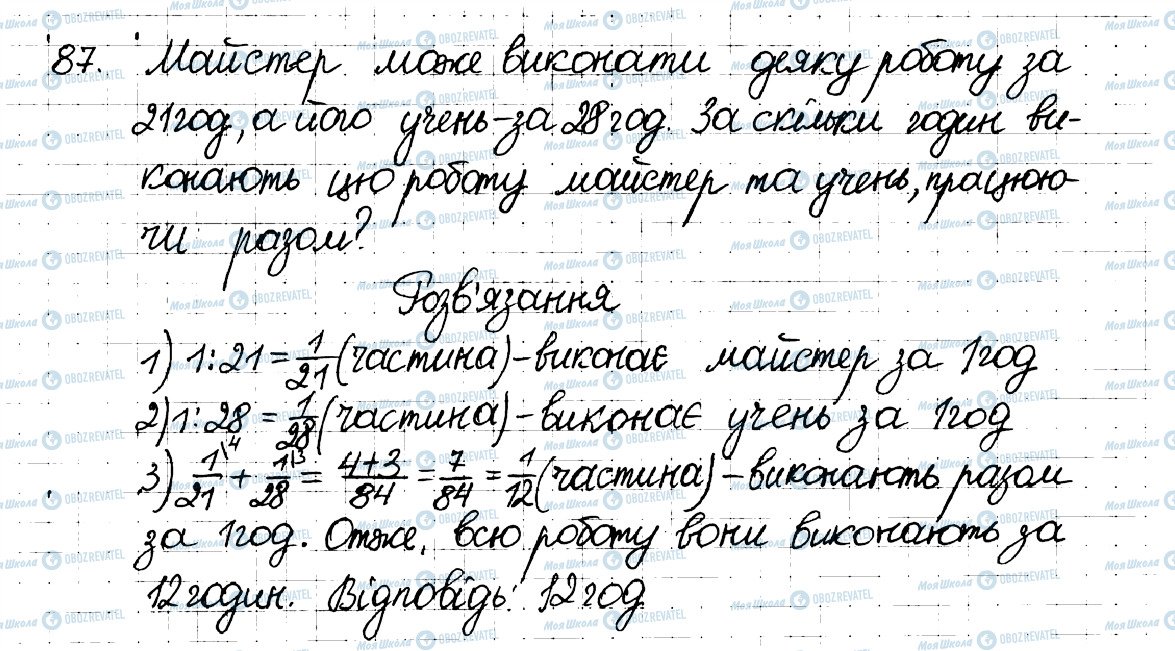 87. Майстер може виконати деяку роботу за
21 год, а його учень - за 28 год. За скільки годин ви-
конають цю роботу майстер та учень, працюю-
чи разом?
Розв'язання
1) 1:21 = 1/21 (частина) - виконає майстер за 1 год
2) 1:28 = 1/28 (частина) - виконає учень за 1 год
3) 1\4/21 + 1\3/28 = 4+3/84 = 7/84 = 1/12 (частина) - виконають разом
за 1 год. Отже, всю роботу вони виконають за
12 годин. Відповідь: 12 год
Моя Школа OBOZREVATEL